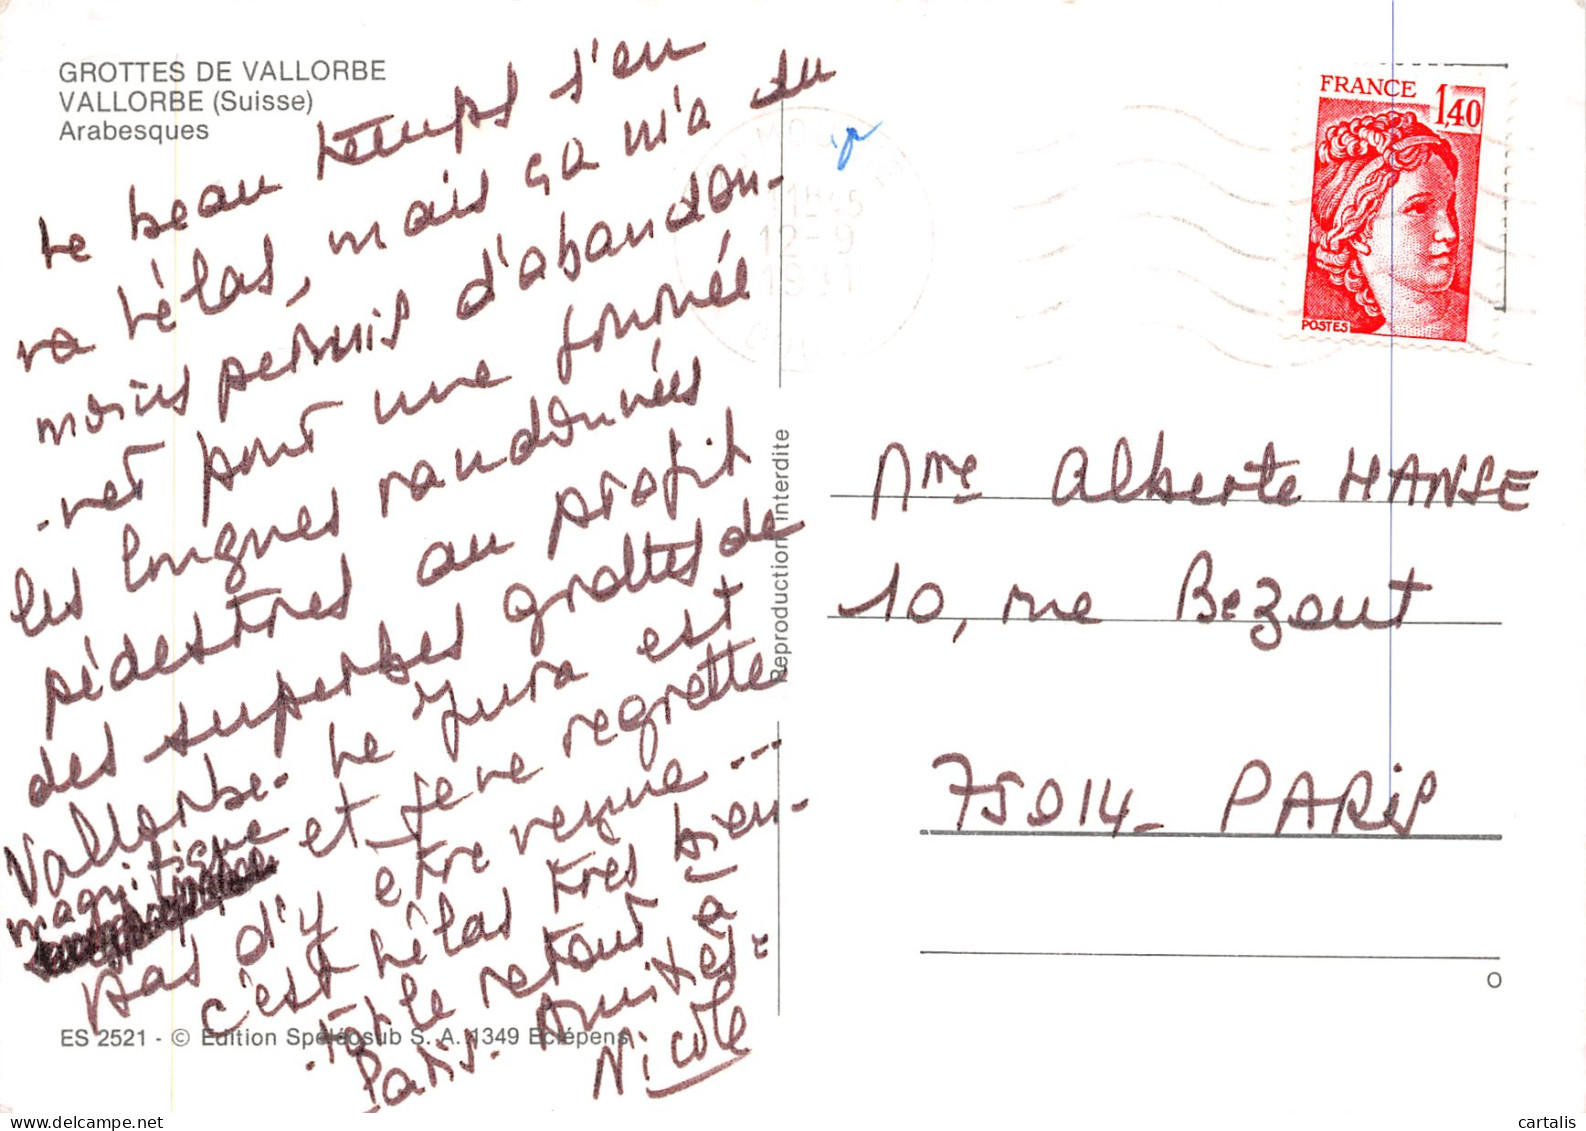 GROTTES DE VALLORBE
VALLORBE (Suisse)
Arabesques
Le beau temps s'en
va hélas, mais ça m'a du
moins permis d'abandon-
-ner pour une journée
les longues randonnées
pédestres au profit
des superbes grottes de
Vallorbe. Le Jura est
magnifique et je ne regrette
pas d'y être venue...
c'est hélas très bien-
-tôt le retour à
Paris. Amitiés-
Nicole
ES 2521 - © Edition Spéléosub S. A. 1349 Eclépens
Reproduction interdite
12-9
1981
FRANCE
1,40
POSTES
Mme Alberte HANSE
10, rue Bezout
75014 - PARIS
O
cartalis